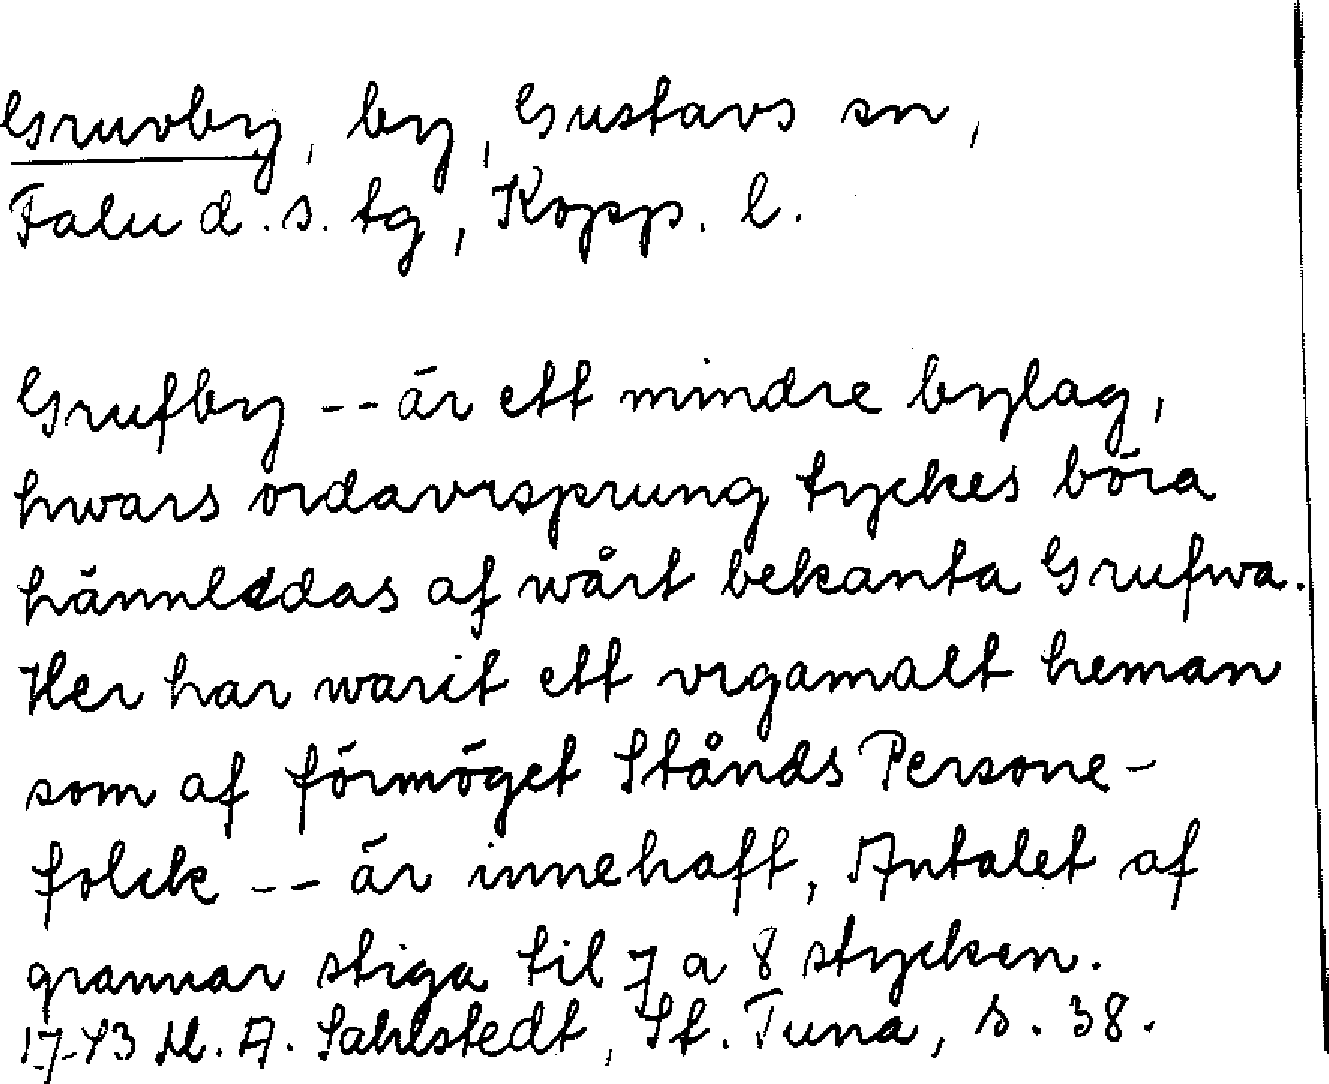 Gruvby, by, Gustavs sn,
Falu d.s. tg, Kopp. l.
Grufby -- är ett mindre bylag,
hwars ordavrsprung tyckes böra
hännleddas af wårt bekanta Grufwa.
Her har warit ett vrgamalt heman
som af förmöget Stånds Persone-
folck -- är innehaft, Antalet af
grannar stiga til 7 a 8 stycken.
1743 M. A. Sahlstedt, St. Tuna, s. 38.